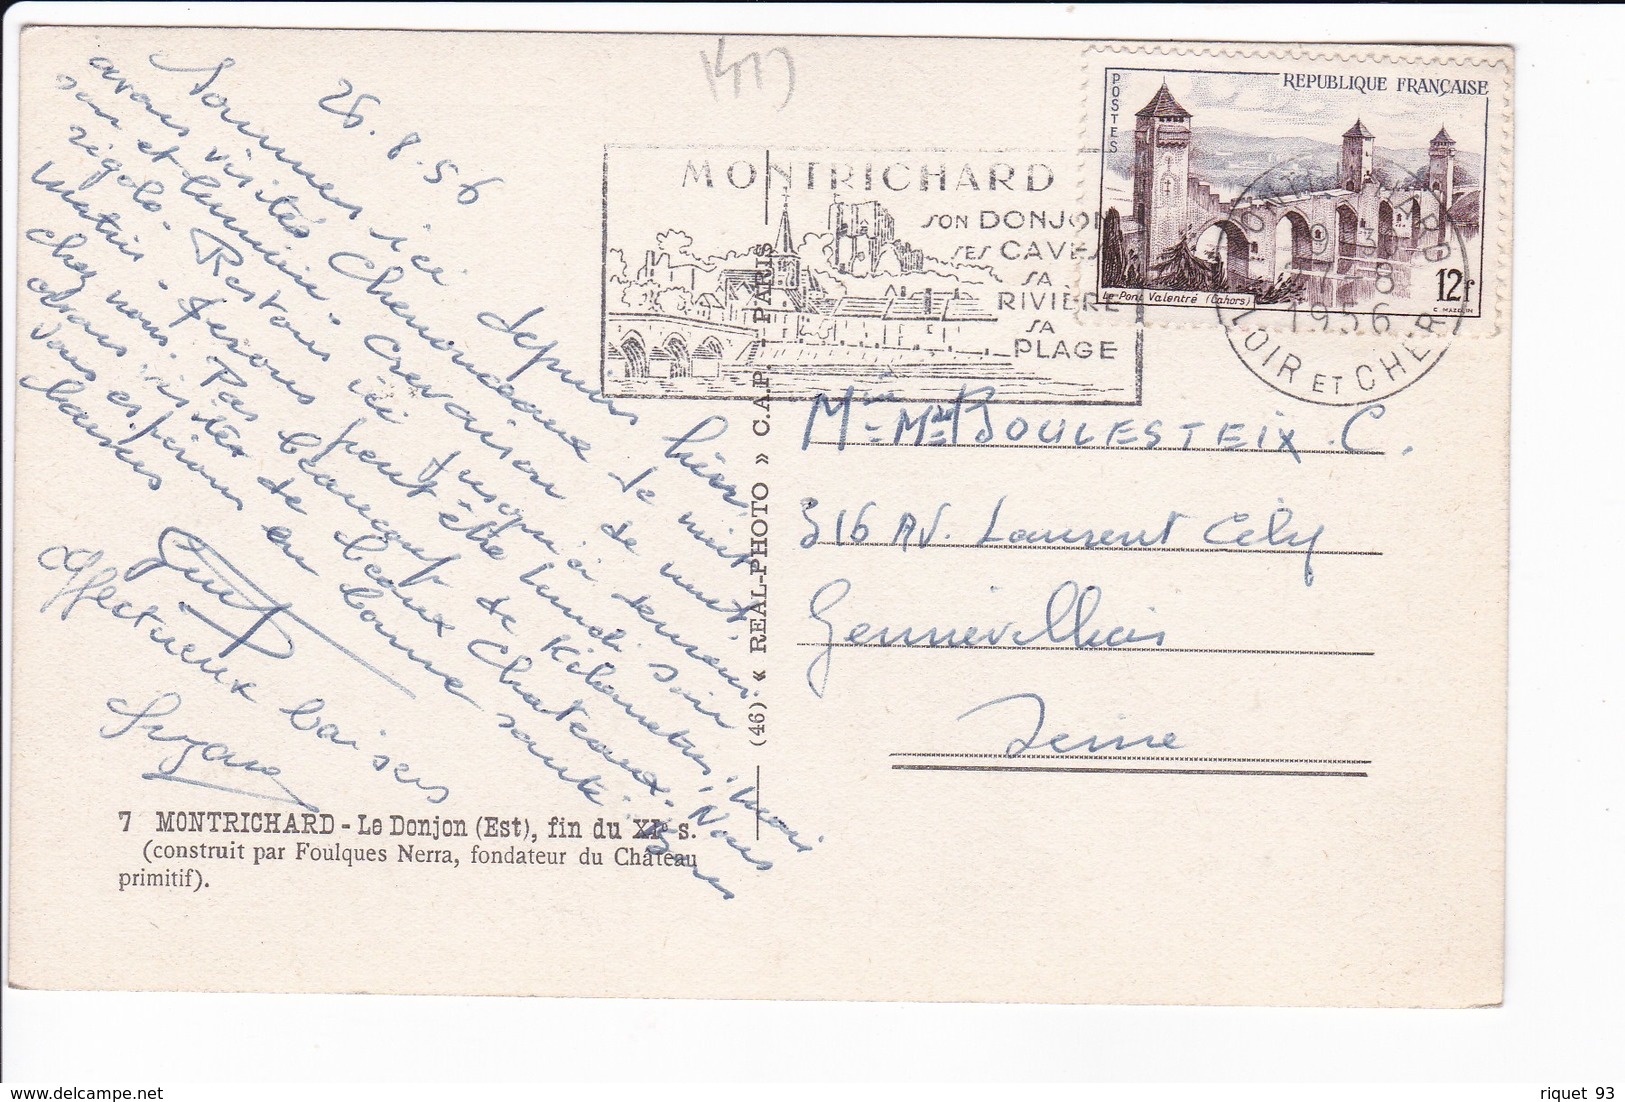 26.8.56
Sommes ici depuis hier,
avons visités Chenonceaux le nuit
son et lumière crevaison de nuit,
rigolo. Restons ici jusqu'à demain
matin. ferons peut être lundi soir
chez nous. Pas beaucoup de Kilometres, mais
avons visités de beaux Chateaux. Nous
vous espérons en bonne santé. Bons
baisers
Affectueux baisers
Suzane
7 MONTRICHARD - Le Donjon (Est), fin du XIe s.
(construit par Foulques Nerra, fondateur du Château
primitif).
(46) « REAL-PHOTO » C.A.P. - PARIS
MONTRICHARD
SON DONJON
SES CAVES
SA
RIVIERE
SA
PLAGE
POSTES
REPUBLIQUE FRANÇAISE
Le Pont Valentré (Cahors)
12f
C. MAZELIN
MONTRICHARD
8
1956
LOIR ET CHER
Mme BOULESTEIX . C.
316 AV. Laurent Cély
Gennevilliers
Seine
riquet 93
delcampe.net